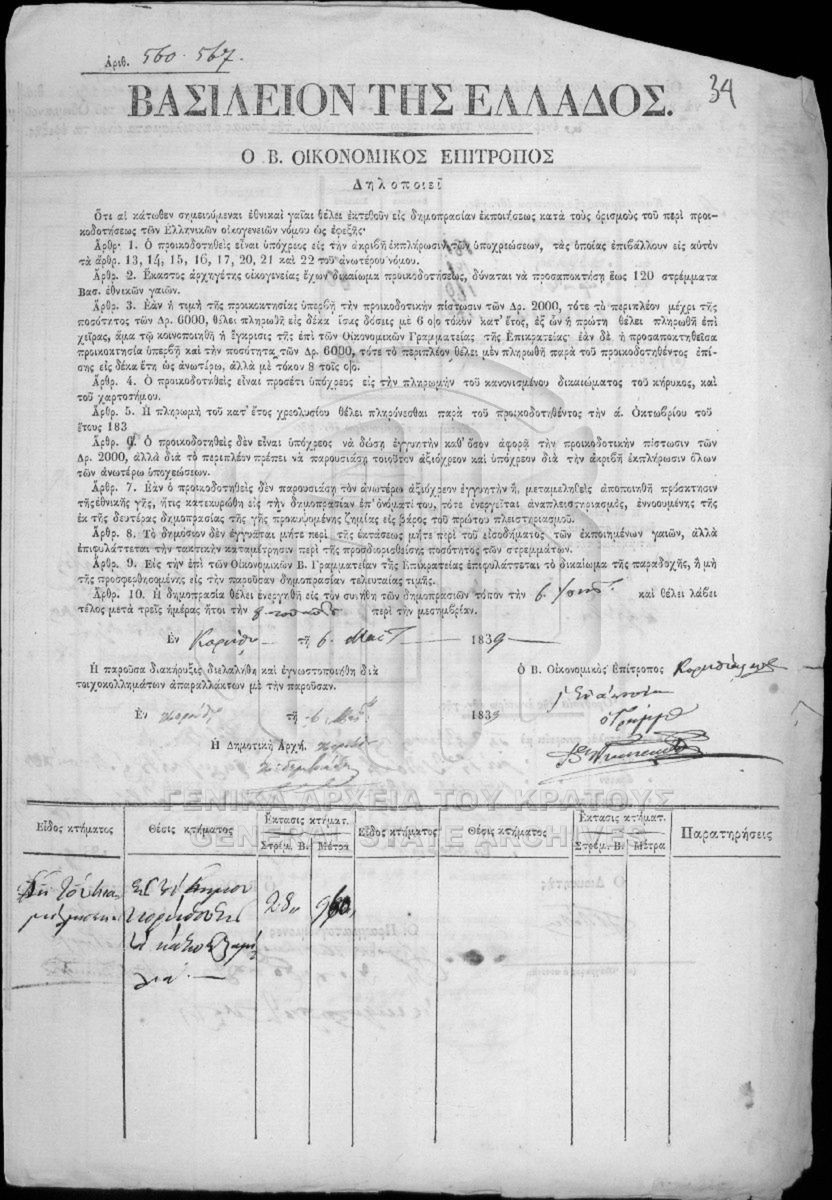 Ἀριθ. 560-567.
34
ΒΑΣΙΛΕΙΟΝ ΤΗΣ ΕΛΛΑΔΟΣ.
Ο Β. ΟΙΚΟΝΟΜΙΚΟΣ ΕΠΙΤΡΟΠΟΣ
Δηλοποιεῖ
Ὅτι αἱ κάτωθεν σημειούμεναι ἐθνικαὶ γαῖαι θέλει ἐκτεθοῦν εἰς δημοπρασίαν ἐκποιήσεως κατὰ τοὺς ὁρισμοὺς τοῦ περὶ προι-
κοδοτήσεως τῶν Ἑλληνικῶν οἰκογενειῶν νόμου ὡς ἐφεξῆς·
Ἄρθρ· 1. Ὁ προικοδοτηθεὶς εἶναι ὑπόχρεος εἰς τὴν ἀκριβῆ ἐκπλήρωσιν τῶν ὑποχρεώσεων, τὰς ὁποίας ἐπιβάλλουν εἰς αὐτὸν
τὰ ἄρθρ. 13, 14, 15, 16, 17, 20, 21 καὶ 22 τοῦ ἀνωτέρω νόμου.
Ἄρθρ. 2. Ἕκαστος ἀρχηγέτης οἰκογενείας ἔχων δικαίωμα προικοδοτήσεως, δύναται νὰ προσαποκτήσῃ ἕως 120 στρέμματα
Βασ. ἐθνικῶν γαιῶν.
Ἄρθρ. 3. Ἐὰν ἡ τιμὴ τῆς προικοκτησίας ὑπερβῇ τὴν προικοδοτικὴν πίστωσιν τῶν Δρ. 2000, τότε τὸ περιπλέον μέχρι τῆς
ποσότητος τῶν Δρ. 6000, θέλει πληρωθῆ εἰς δέκα ἴσας δόσεις μὲ 6 ο)ο τόκον κατ' ἔτος, ἐξ ὧν ἡ πρώτη θέλει πληρωθῆ ἐπὶ
χεῖρας, ἅμα τῷ κοινοποιηθῇ ἡ ἔγκρισις τῆς ἐπὶ τῶν Οἰκονομικῶν Γραμματείας τῆς Ἐπικρατείας· ἐὰν δὲ ἡ προσαποκτηθεῖσα
προικοκτησία ὑπερβῇ καὶ τὴν ποσότητα τῶν Δρ. 6000, τότε τὸ περιπλέον θέλει μὲν πληρωθῆ παρὰ τοῦ προικοδοτηθέντος ἐπί-
σης εἰς δέκα ἔτη ὡς ἀνωτέρω, ἀλλὰ μὲ τόκον 8 τοῖς ο)ο.
Ἄρθρ. 4. Ὁ προικοδοτηθεὶς εἶναι προσέτι ὑπόχρεος εἰς τὴν πληρωμὴν τοῦ κανονισμένου δικαιώματος τοῦ κήρυκος, καὶ
τοῦ χαρτοσήμου.
Ἄρθρ. 5. Ἡ πληρωμὴ τοῦ κατ' ἔτος χρεολυσίου θέλει πληρόνεσθαι παρὰ τοῦ προικοδοτηθέντος τὴν ά. Ὀκτωβρίου τοῦ
ἔτους 183
Ἄρθρ. 6. Ὁ προικοδοτηθεὶς δὲν εἶναι ὑπόχρεος νὰ δώσῃ ἐγγυητὴν καθ' ὅσον ἀφορᾷ τὴν προικοδοτικὴν πίστωσιν τῶν
Δρ. 2000, ἀλλὰ διὰ τὸ περιπλέον πρέπει νὰ παρουσιάσῃ τοιοῦτον ἀξιόχρεον καὶ ὑπόχρεον διὰ τὴν ἀκριβῆ ἐκπλήρωσιν ὅλων
τῶν ἀνωτέρω ὑποχρεώσεων.
Ἄρθρ. 7. Ἐὰν ὁ προικοδοτηθεὶς δὲν παρουσιάσῃ τὸν ἀνωτέρω ἀξιόχρεον ἐγγυητὴν ἢ, μεταμεληθεὶς ἀποποιηθῇ πρόσκτησιν
τῆς ἐθνικῆς γῆς, ἥτις κατεκυρώθη εἰς τὴν δημοπρασίαν ἐπ' ὀνόματί του, τότε ἐνεργεῖται ἀναπλειστηριασμὸς, ἐννοουμένης τῆς
ἐκ τῆς δευτέρας δημοπρασίας τῆς γῆς προκυψομένης ζημίας εἰς βάρος τοῦ πρώτου πλειστηριασμοῦ.
Ἄρθρ. 8. Τὸ δημόσιον δὲν ἐγγυᾶται μήτε περὶ τῆς ἐκτάσεως μήτε περὶ τοῦ εἰσοδήματος τῶν ἐκποιημένων γαιῶν, ἀλλὰ
ἐπιφυλάττεται τὴν τακτικὴν καταμέτρησιν περὶ τῆς προσδιορισθείσης ποσότητος τῶν στρεμμάτων.
Ἄρθρ. 9. Εἰς τὴν ἐπὶ τῶν Οἰκονομικῶν Β. Γραμματείαν τῆς Ἐπικρατείας ἐπιφυλάττεται τὸ δικαίωμα τῆς παραδοχῆς, ἢ μὴ
τῆς προσφερθησομένης εἰς τὴν παροῦσαν δημοπρασίαν τελευταίας τιμῆς.
Ἄρθρ. 10. Ἡ δημοπρασία θέλει ἐνεργηθῆ εἰς τὸν συνήθη τῶν δημοπρασιῶν τόπον τὴν 6. καὶ θέλει λάβει
τέλος μετὰ τρεῖς ἡμέρας ἤτοι τὴν 8 περὶ τὴν μεσημβρίαν.
Ἐν Κορίνθῳ τῇ 6. 1839
Ἡ παροῦσα διακήρυξις διελαλήθη καὶ ἐγνωστοποιήθη διὰ
τοιχοκολλημάτων ἀπαραλλάκτων μὲ τὴν παροῦσαν.
Ὁ Β. Οἰκονομικὸς Ἐπίτροπος Κορινθίας
Ἐν Κορίνθῳ τῇ 6 1839
Ἡ Δημοτικὴ Ἀρχή.
ΓΕΝΙΚΑ ΑΡΧΕΙΑ ΤΟΥ ΚΡΑΤΟΥΣ
GENERAL STATE ARCHIVES
Εἶδος κτήματος Θέσις κτήματος Ἔκτασις κτήματ. Εἶδος κτήματος Θέσις κτήματος Ἔκτασις κτήματ. Παρατηρήσεις
Στρέμ. Β. Μέτρα Στρέμ. Β. Μέτρα
28